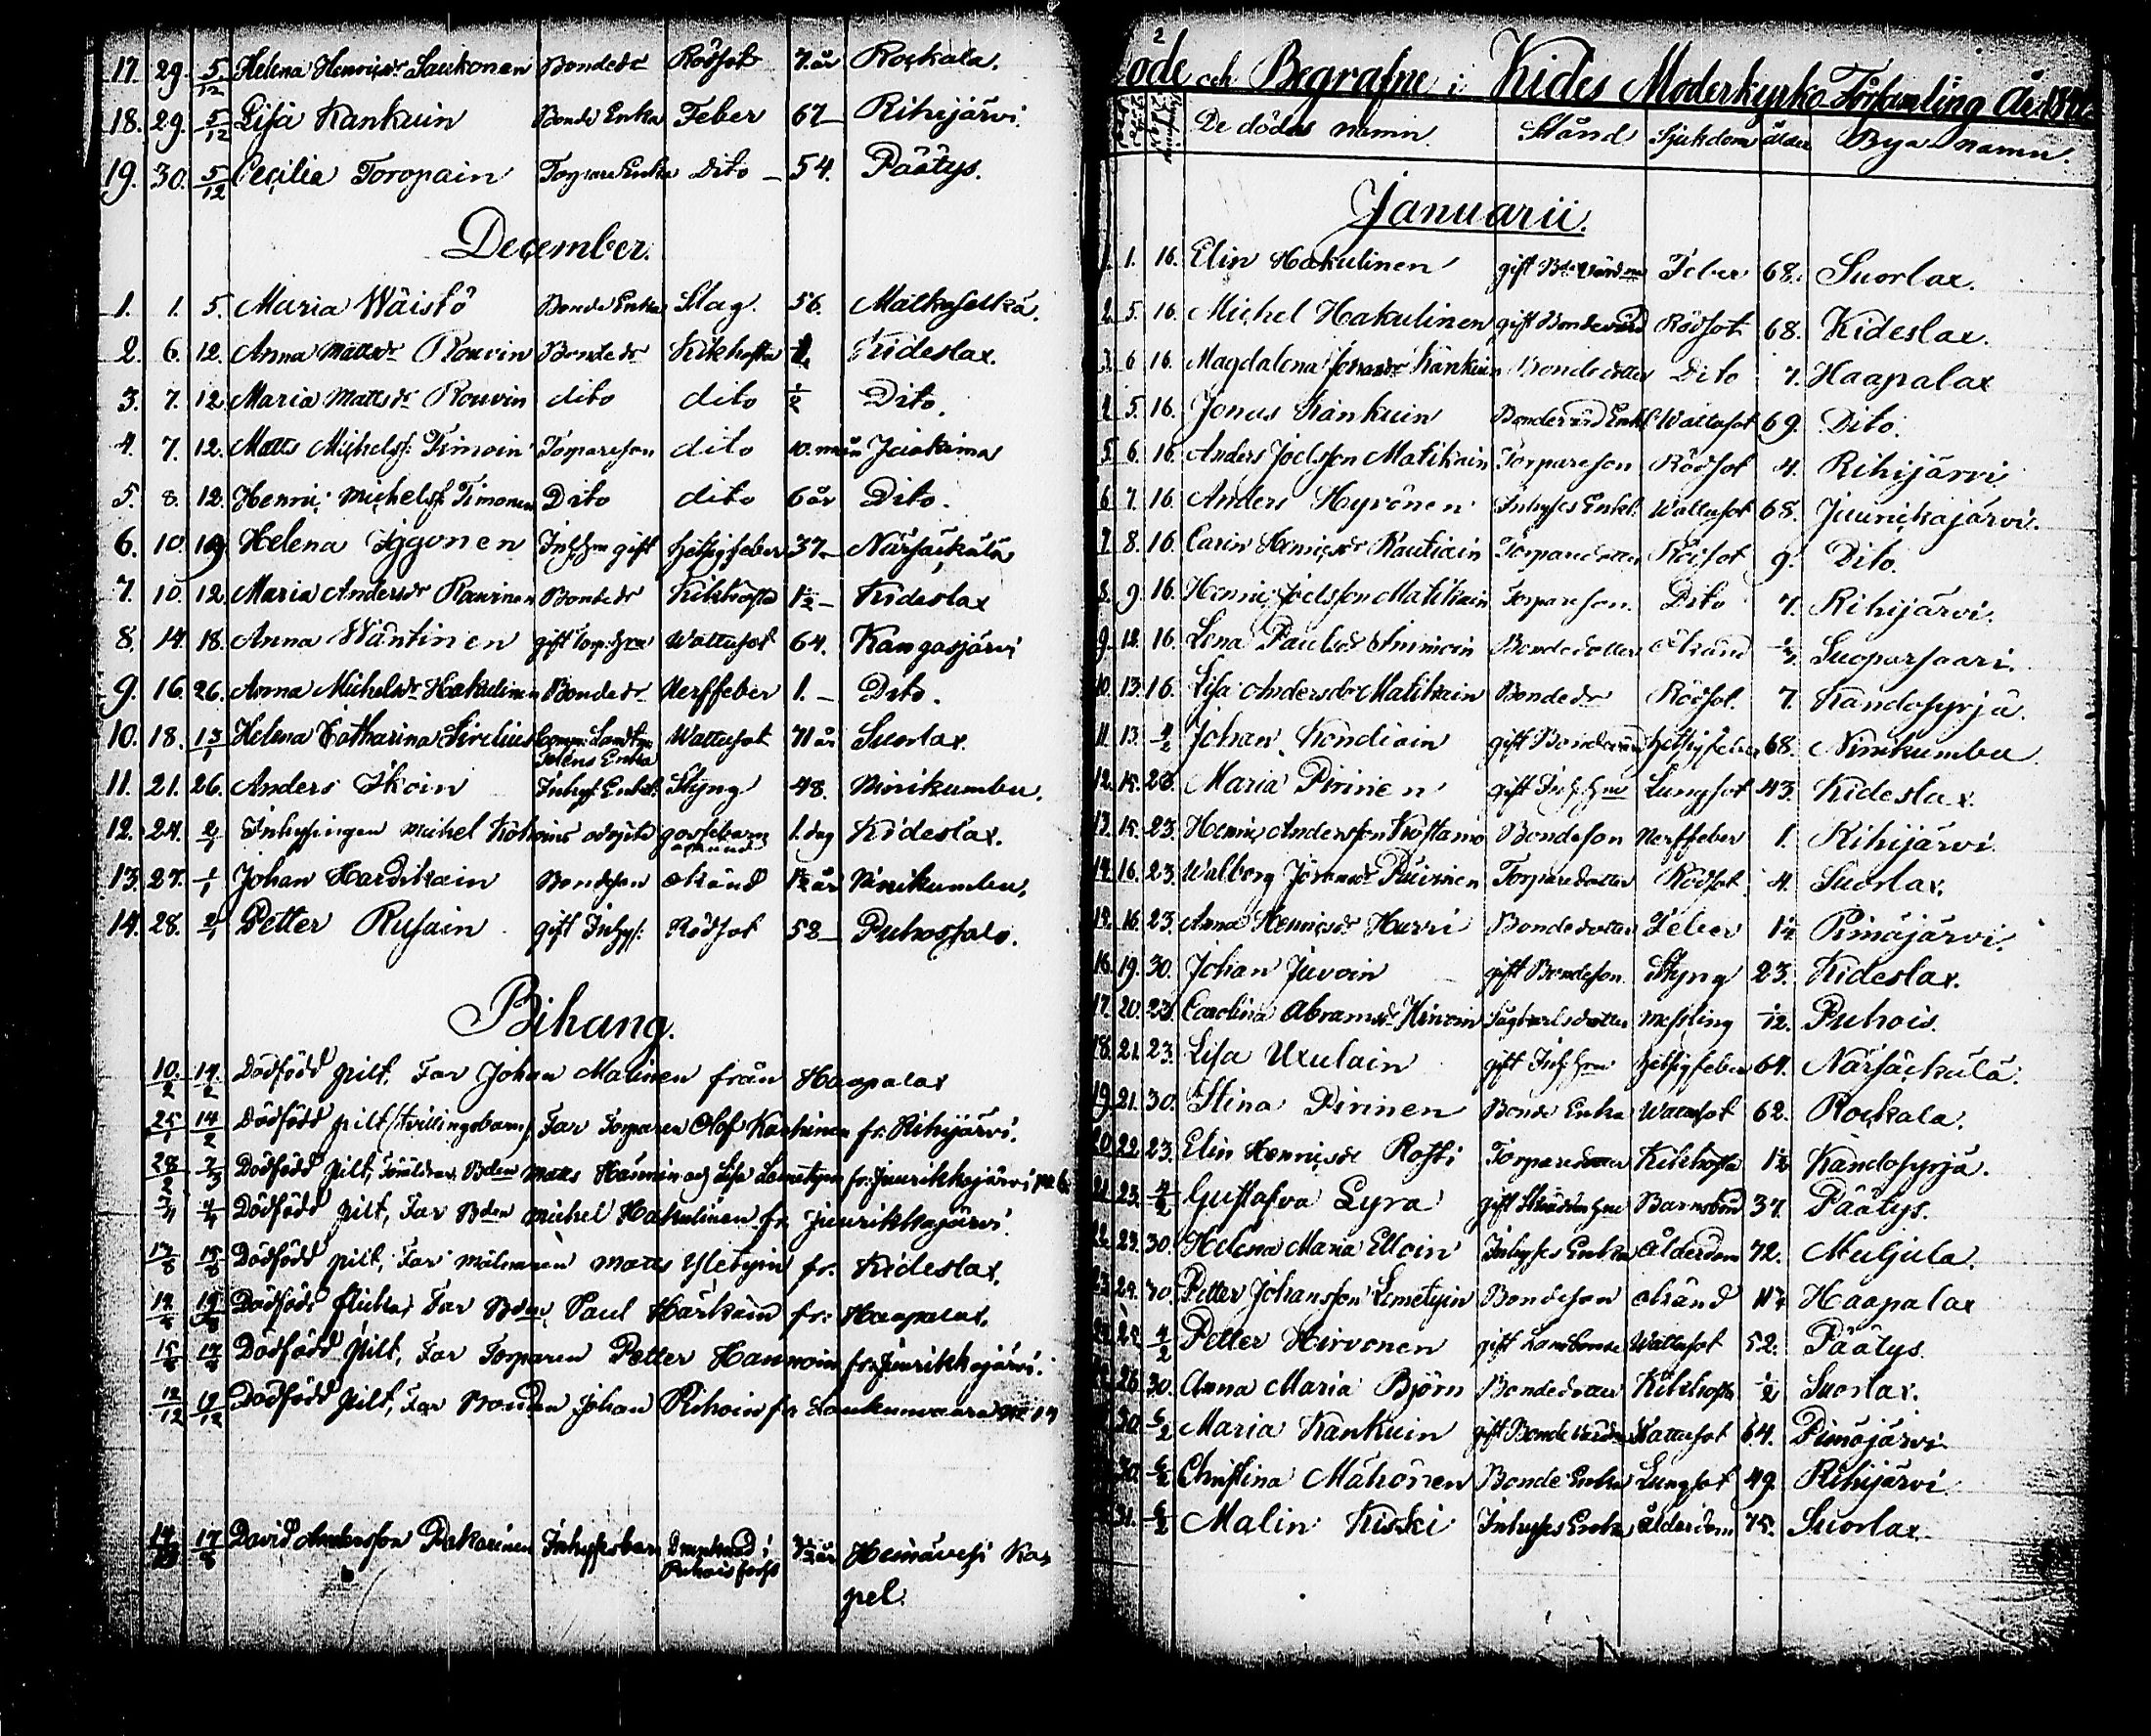 17. 29. 5/12 Helena Henricsdr Saukonen Bondedr Rödsot 7. år Rockala.
18. 29. 5/12 Lisa Kankuin Bonde Enka Feber 67 Rihijärvi.
19. 30. 5/12 Cecilia Toropain Torpare Enka Dito 54. Päätys.
December.
1. 1. 5. Maria Wäistö Bonde Enka Slag. 56. Matkaselkä.
2. 6. 12. Anna Mattsdr Rouvin Bondedr Kikhosta Kideslax.
3. 7. 12. Maria Mattsdr Rouvin dito dito 1/2 Dito.
4. 7. 12. Matts Michelss: Timoin Torpareson dito 10. mån Jaakima
5. 8. 12. Henric Michelss: Timonen Dito dito 6 år Dito.
6. 10. 19 Helena Iggonen Inh:hru gift hetsigfeber 37 Närsäckälä
7. 10. 12. Maria Andersdr Rauvinen Bondedr Kikhosta 1 1/2 Kideslax
8. 14. 18. Anna Wäntinen gift Torp:hru Wattusot 64. Kangasjärvi
9. 16. 26. Anna Michelsdr Hakulinen Bondedr Nerffeber 1. Dito.
10. 18. 13/1 Helena Catharina Sirelius Comm: Landtm: Enka Wattusot 71 år Suorlax.
11. 21. 26. Anders Ikoin Inhys: Enkl: Styng 48. Niinikumbu.
12. 24. 2/1 Inhysingen Michel odöpta gossebarn okänd 1. dag Kideslax.
13. 27. 1/1 Johan Hardikain Bondeson okänd 1 1/2 år Niinikumbu.
14. 28. 2/1 Petter Rusain gift Inhys: Rödsot 58 Puhossalo.
Bihang.
10/2 14/2 Dödfödd pilt, Far Johan Malinen från Haapalax
25/1 14/2 Dödfödd pilt (tvillingebarn), Far Torparen Olof Karhinen fr. Rihijärvi.
28/2 7/3 Dödfödd pilt, Föräldrar Bden Matts och Lisa Lemetyin fr: Juurikkajärvi
3/4 4/4 Dödfödd pilt, Far Bden Michel Hakulinen fr Juurikkajärvi.
Dödfödd pilt, Far Målaren Matts Yletyin fr. Kideslax.
Dödfödd flicka, Far Bden Paul Härkäin fr: Haapalax.
Dödfödd pilt, Far Torparen Petter fr: Juurikkajärvi.
Dödfödd pilt, Far Bonden Johan Rihoin fr
David Andersson Pakarinen Inhysesbarn Drunknad i Puhois fors 3 1/2 år Heinävesi Kapel.
2
Döde och Begrafne i Kides Moderkyrko Församling År
De dödas namn. Stånd Sjukdom ålder Bya namn.
Januarii.
1. 1. 16. Elin Hakulinen gift Feber 68. Suorlax.
2. 5. 16. Michel Hakulinen gift Bondevärd Rödsot 68. Kideslax.
3. 6 16. Magdalena Jonasdr Kankuin Bondedotter Dito 7. Haapalax
4. 5. 16. Jonas Kankuin Bondevärd Enkl: Wattusot 69. Dito.
5. 6. 16. Anders Joelsson Matikain Torpareson Rödsot 4. Rihijärvi
6 7 16. Anders Hyvönen Inhyses Enkl: Wattusot 68. Juurikajärvi.
7 8. 16. Carin Henricsdr Rautiain Torparedotter Rödsot 9. Dito.
8. 9. 16. Henric Joelsson Matikain Torpareson. Dito 7. Rihijärvi.
9. 12. 16. Lena Paulsdr Imminen Bondedotter okänd Suoparsaari.
10. 13. 16. Lisa Andersdr Matikain Bondedr Rödsot. 7. Kandosyrjä.
11. 13. 4/2 Johan Kondiain gift Bondevärd hetsigfeber 68. Niinikumbu.
12. 15. 23. Maria Pirinen gift Inh:hru Lungsot 43. Kideslax.
13. 15. 23. Henric Andersson Kostamo Bondeson Nerffeber 1. Rihijärvi.
14. 16. 23. Walborg Jöransdr Torparedotter Rödsot 4. Suorlax.
15. 16. 23. Anna Henricsdr Hurri Bondedotter Feber Pimäjärvi.
16. 19. 30. Johan Juvoin gift Bondeson. Styng 23. Kideslax.
17. 20. 23. Carolina Abramsdr Hirvoin Sågkarlsdotter Messling 1/12. Puhois.
18. 21. 23. Lisa Uxulain gift Inh:hru hetsigfeber 64. Närsäckälä.
19. 21. 30. Stina Pirinen Bonde Enka Wattusot 62. Rockala.
20. 22. 23. Elin Henricsdr Rosti Torparedotter Kikhosta 1 1/2 Kandosyrjä.
21. 23. 4/2 Gustafva Lyra gift Barnsbörd 37. Päätys.
22. 23. 30. Helena Maria Elloin Inhyses Enka Ålderdom 72. Muljula.
23. 24. 30. Petter Johansson Lemetyin Bondeson okänd Haapalax
24. 25. 4/2 Petter Hirvonen gift Landbonde Wattusot 52. Päätys.
26. 30. Anna Maria Björn Bondedotter Kikhosta 1/2 Suorlax.
30. 6/2 Maria Kankuin gift Bonde Wattusot 64. Pimäjärvi
30. 6/2 Christina Mähönen Bonde Enka Lungsot 49. Rihijärvi
31. 6/2 Malin Kiski Inhyses Enka Ålderdom 75. Suorlax.